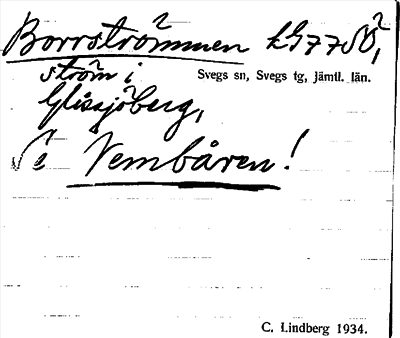 Borrströmmen LG77SV,
ström i Svegs sn, Svegs tg, jämtl. län.
Glissjöberg,
Se Vembåren!
C. Lindberg 1934.